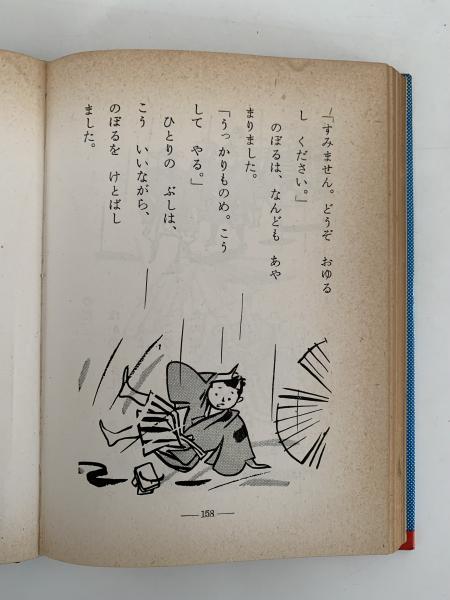 「すみません。どうぞ　おゆる
し　ください。」
のぼるは、なんども　あや
まりました。
「うっかりものめ。こう
して　やる。」
ひとりの　ぶしは、
こう　いいながら、
のぼるを　けとばし
ました。
158